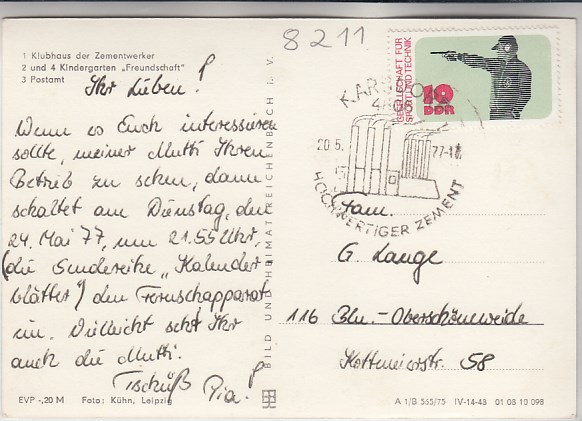 8211
1 Klubhaus der Zementwerker
2 und 4 Kindergarten „Freundschaft"
3 Postamt
Ihr Lieben!
Wenn es Euch interessieren
sollte, meiner Mutti Ihren
Betrieb zu sehen, dann
schaltet am Dienstag, den
24. Mai 77, um 21.55 Uhr,
(die Sendereihe „Kalender
blätter") den Fernsehapparat
ein. Vielleicht seht Ihr
auch die Mutti.
Tschüß Pia!
EVP -,20 M Foto: Kühn, Leipzig
BILD UND HEIMAT REICHENBACH I. V.
GESELLSCHAFT FÜR
SPORT UND TECHNIK
10
DDR
20.5.
77-18
HOCHWERTIGER ZEMENT
Fam.
G. Lange
116 Bln.-Oberschöneweide
58
A 1/B 565/75 IV-14-48 01 08 10 098